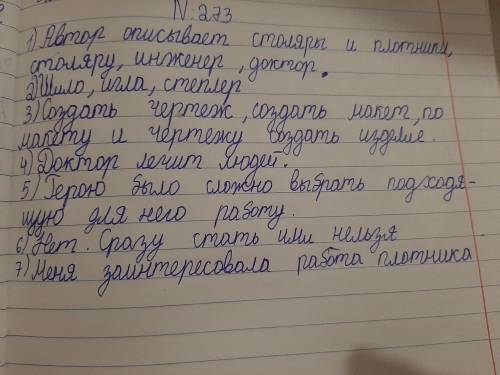 N:273
1) Автор описывает столяры и плотники,
столяру, инженер, доктор.
2) Шило, игла, степлер
3) Создать чертеж, создать макет, по
макету и чертежу создать изделие.
4) Доктор лечит людей.
5) Герою было сложно выбрать подходя-
щую для него работу.
6) Нет. Сразу стать ими нельзя
7) Меня заинтересовала работа плотника